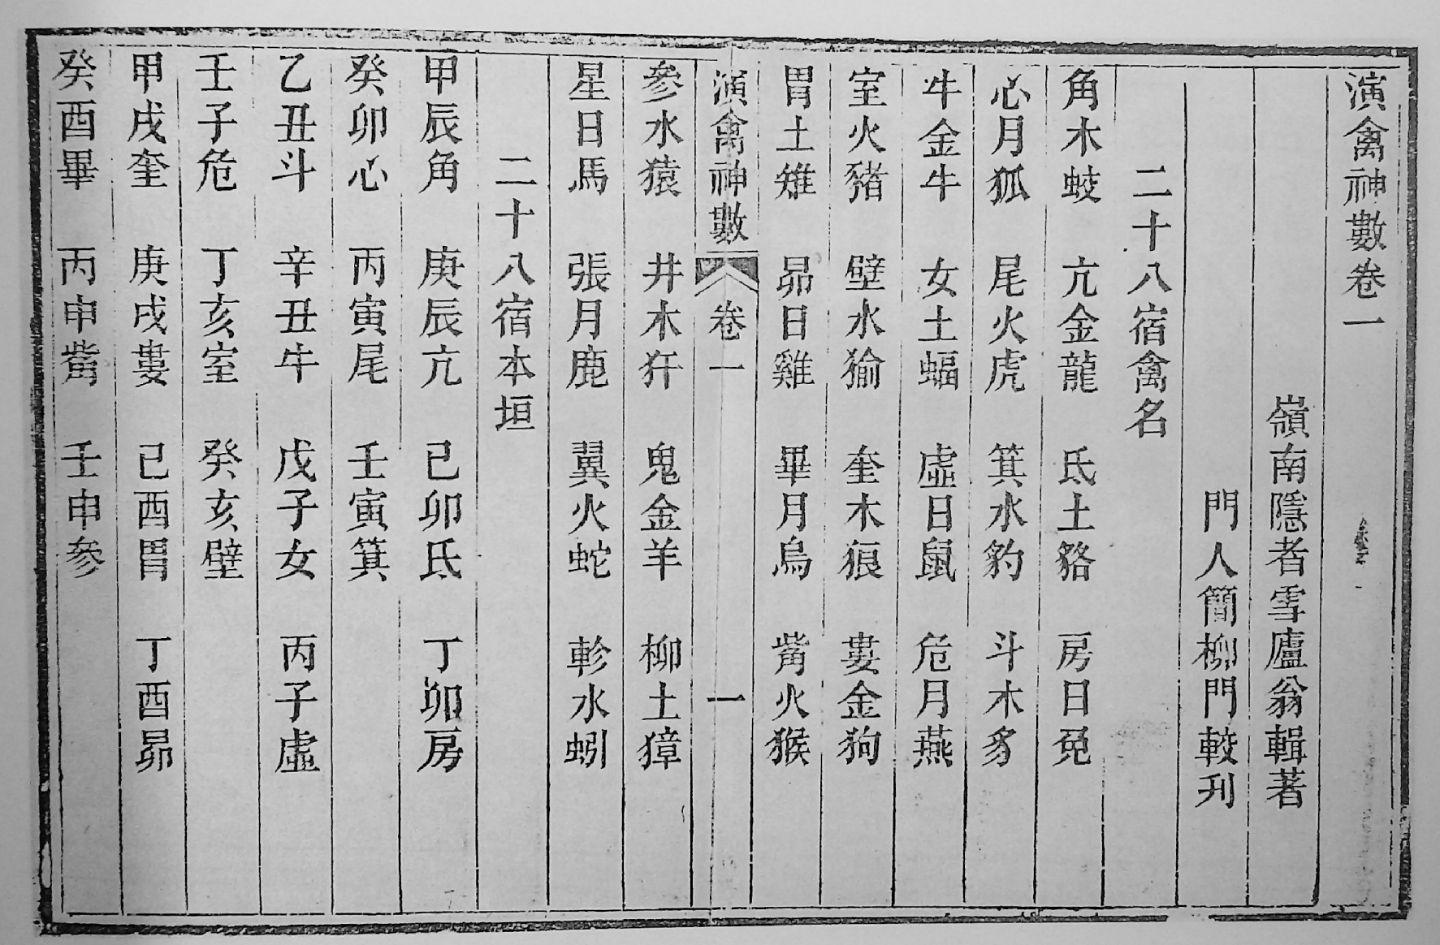 演禽神數卷一
嶺南隱者雪廬翁輯著
門人簡柳門較刋
二十八宿禽名
角木蛟 亢金龍 氐土貉 房日兔
心月狐 尾火虎 箕水豹 斗木豸
牛金牛 女土蝠 虛日鼠 危月燕
室火豬 壁水㺄 奎木狼 婁金狗
胃土雉 昴日雞 畢月烏 觜火猴
演禽神數 卷一 一
參水猿 井木犴 鬼金羊 柳土獐
星日馬 張月鹿 翼火蛇 軫水蚓
二十八宿本垣
甲辰角 庚辰亢 己卯氐 丁卯房
癸卯心 丙寅尾 壬寅箕
乙丑斗 辛丑牛 戊子女 丙子虛
壬子危 丁亥室 癸亥壁
甲戌奎 庚戌婁 己酉胃 丁酉昴
癸酉畢 丙申觜 壬申參